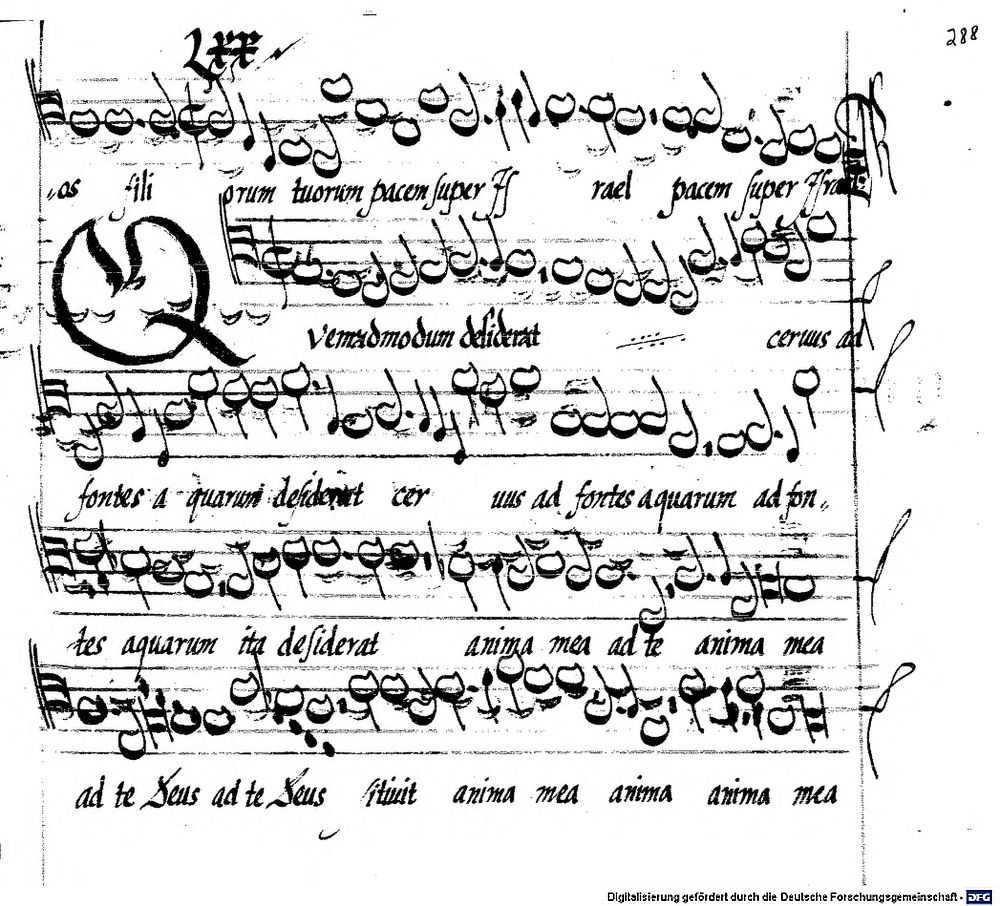 288
Lxx
os fili orum tuorum pacem super Isrl rael pacem super Israel
Quemadmodum desiderat ceruus ad
fontes a quarum desiderat cer uus ad fontes aquarum ad fon„
tes aquarum ita desiderat anima mea ad te anima mea
ad te Deus ad te Deus sitiuit anima mea anima anima mea
Digitalisierung gefördert durch die Deutsche Forschungsgemeinschaft - DFG